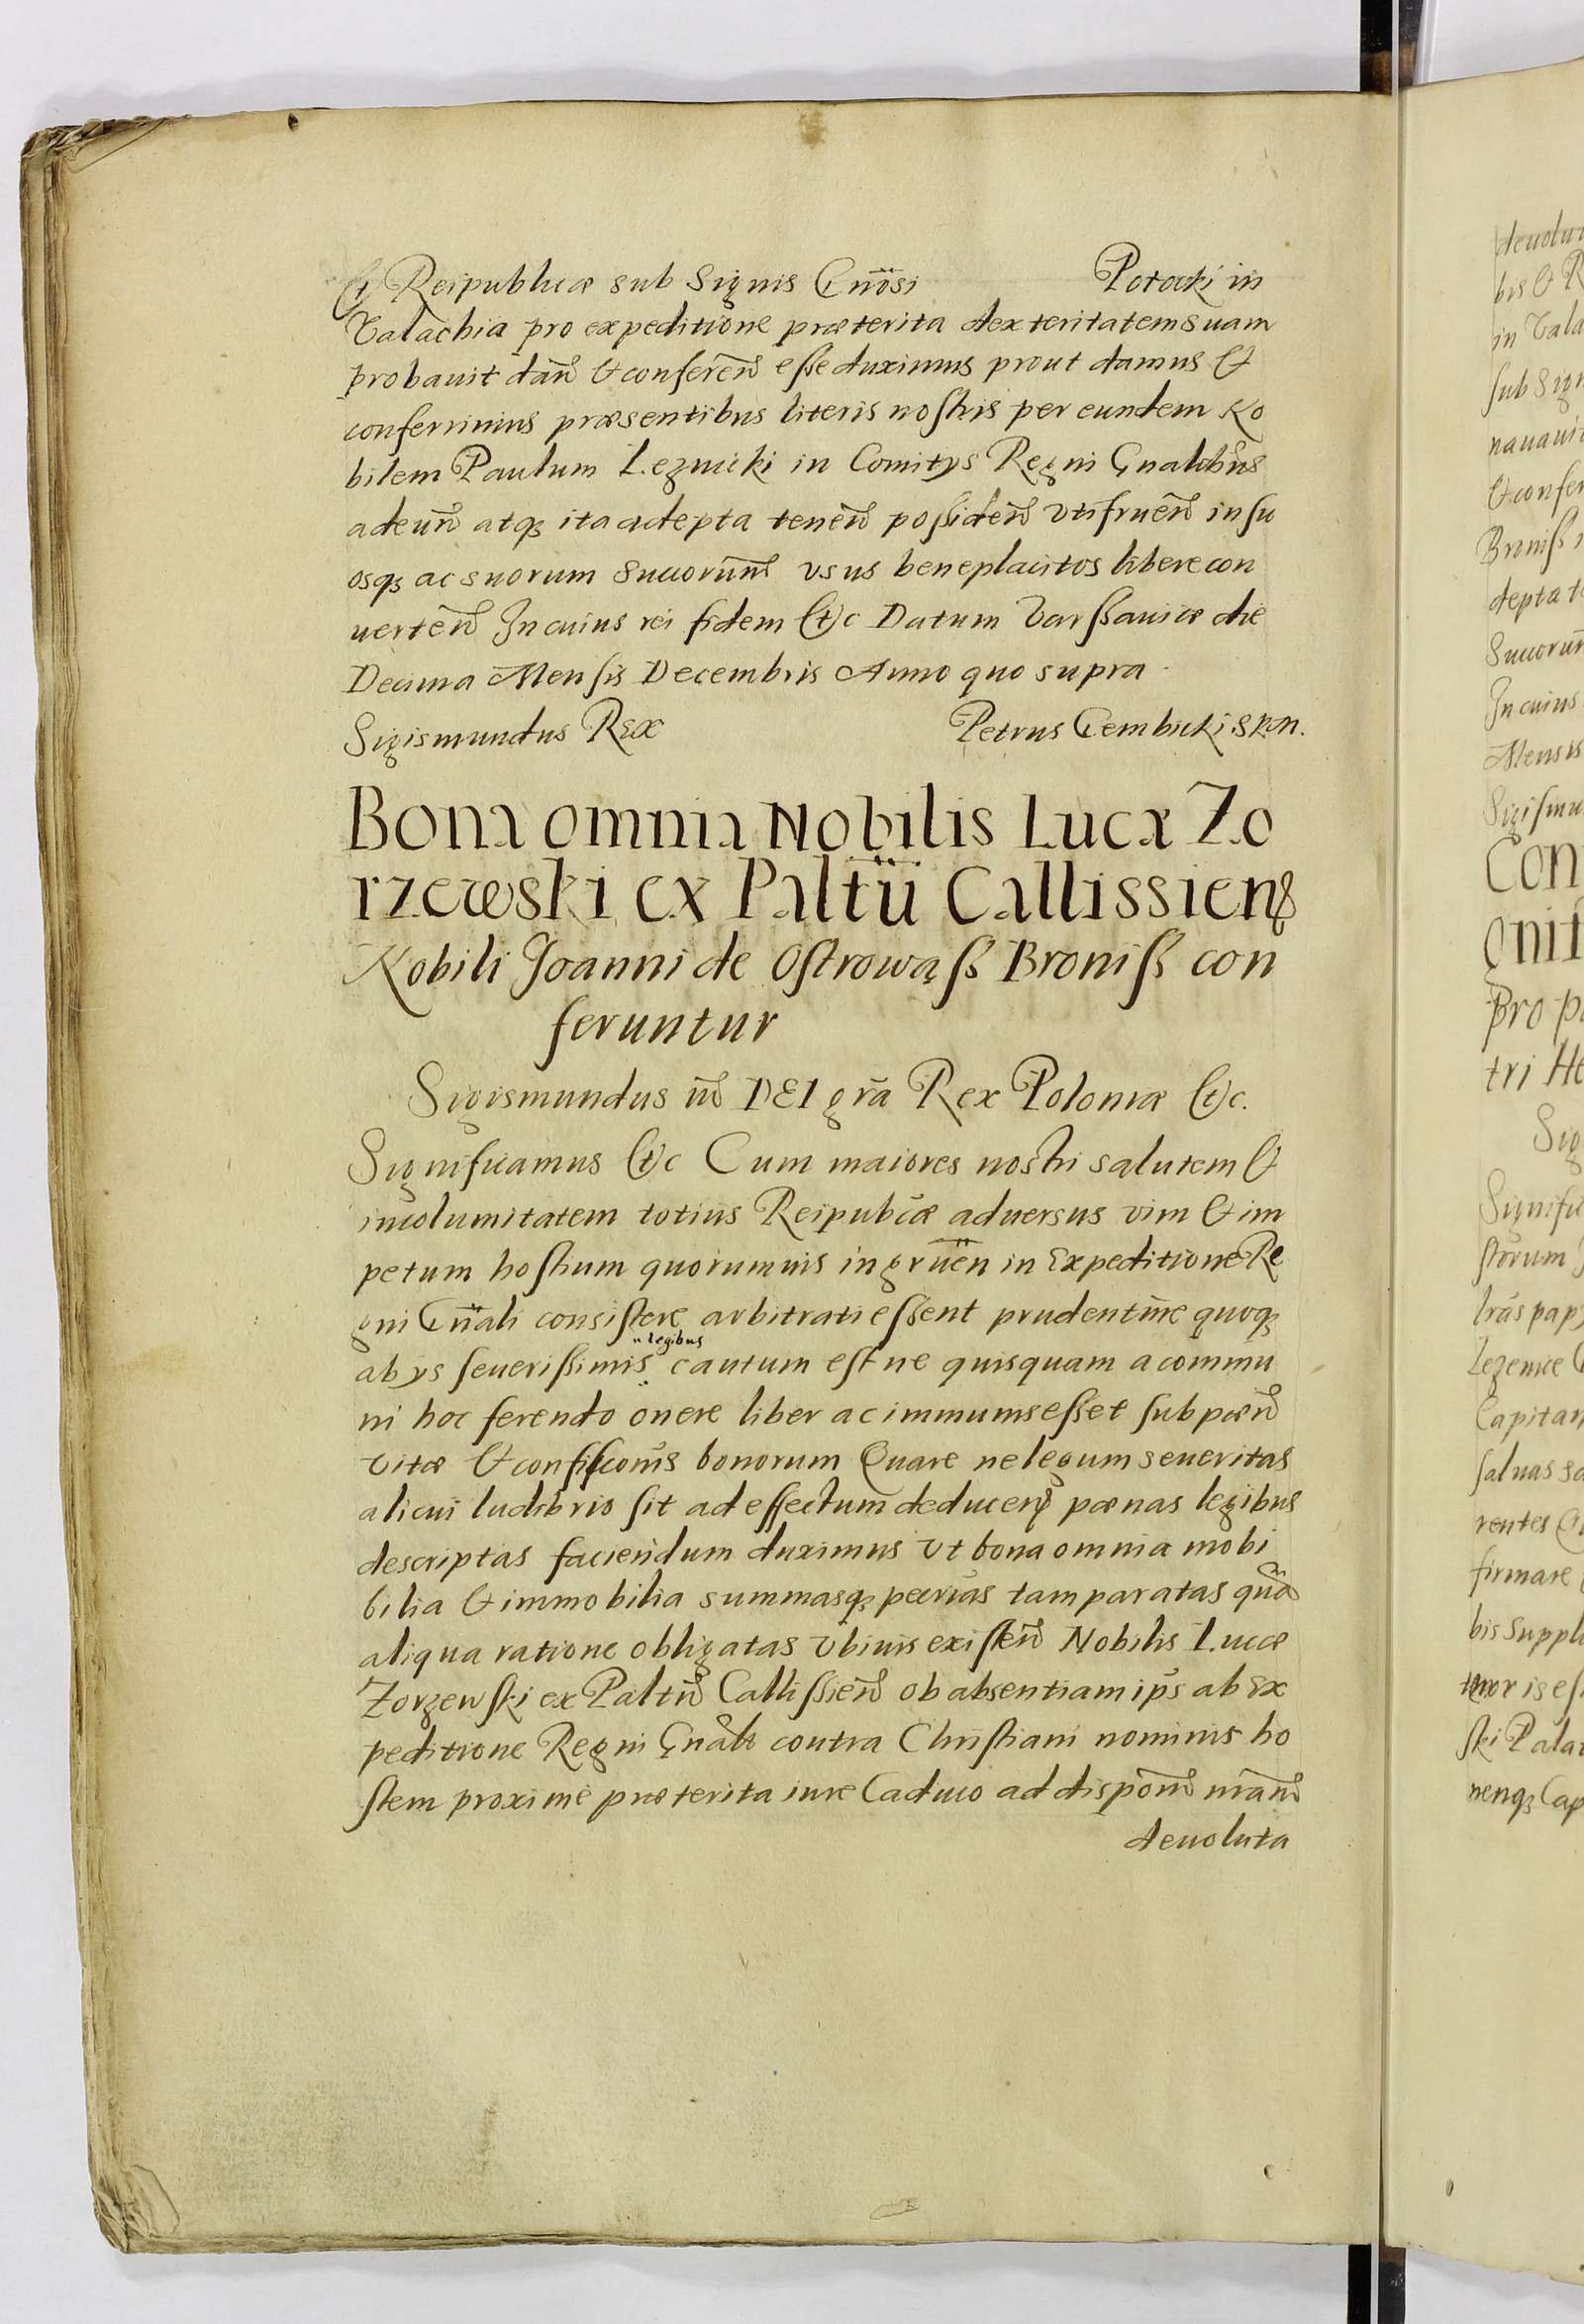 Et Reipublicæ sub Signis Gn̄osi Potocki in
Valachia pro expeditione præterita dexteritatem suam
probauit dan̄ & conferen̄ esse duximus prout damus &
conferrimus præsentibus literis nostris per eundem No
bilem Paulum Leznicki in Comitys Regni Gnalibus
adeun̄ atqꝫ ita adepta tenen̄ possiden̄ vtifruen̄ in su
osqꝫ ac suorum Succorum̄ vsus beneplacitos libere con
uerten̄ In cuius rei fidem &c Datum Varssauiæ die
Decima Mensis Decembris Anno quo supra
Sigismundus Rex Petrus Tembicki. S R. m.
Bona omnia Nobilis Lucæ Zo
rzewski ex Paltū Callissien̄
Nobili Joanni de Ostrowąss Broniss con
feruntur
Sigismundus iii DEI grā Rex Poloniæ &c.
Significamus &c Cum maiores nostri salutem &
incolumitatem totius Reipubcæ aduersus vim & im
petum hostium quorumuis ingruen̄ in Expeditione Re
gni Gn̄ali consistere arbitrati essent prudentm̄e quoqꝫ
ab ys seuerissimis legibus cautum est ne quisquam a commu
ni hoc ferendo onere liber ac immunis esset sub pœn̄
vitæ & confisconis bonorum Quare ne legum seueritas
alicui ludibrio sit ad effectum deducen̄ pœnas legibus
descriptas faciendum duximus vt bona omnia mobi
bilia & immobilia summasqꝫ pecrias tam paratas quā
aliqua ratione obligatas vbiuis existen̄ Nobilis Lucæ
Zorzewski ex Paltn̄ Callissien̄ ob absentiam ips ab Ex
peditione Regni Gnali contra Christiani nominis ho
stem proxime præterita iure Caduco ad dispōnem nrām
deuoluta